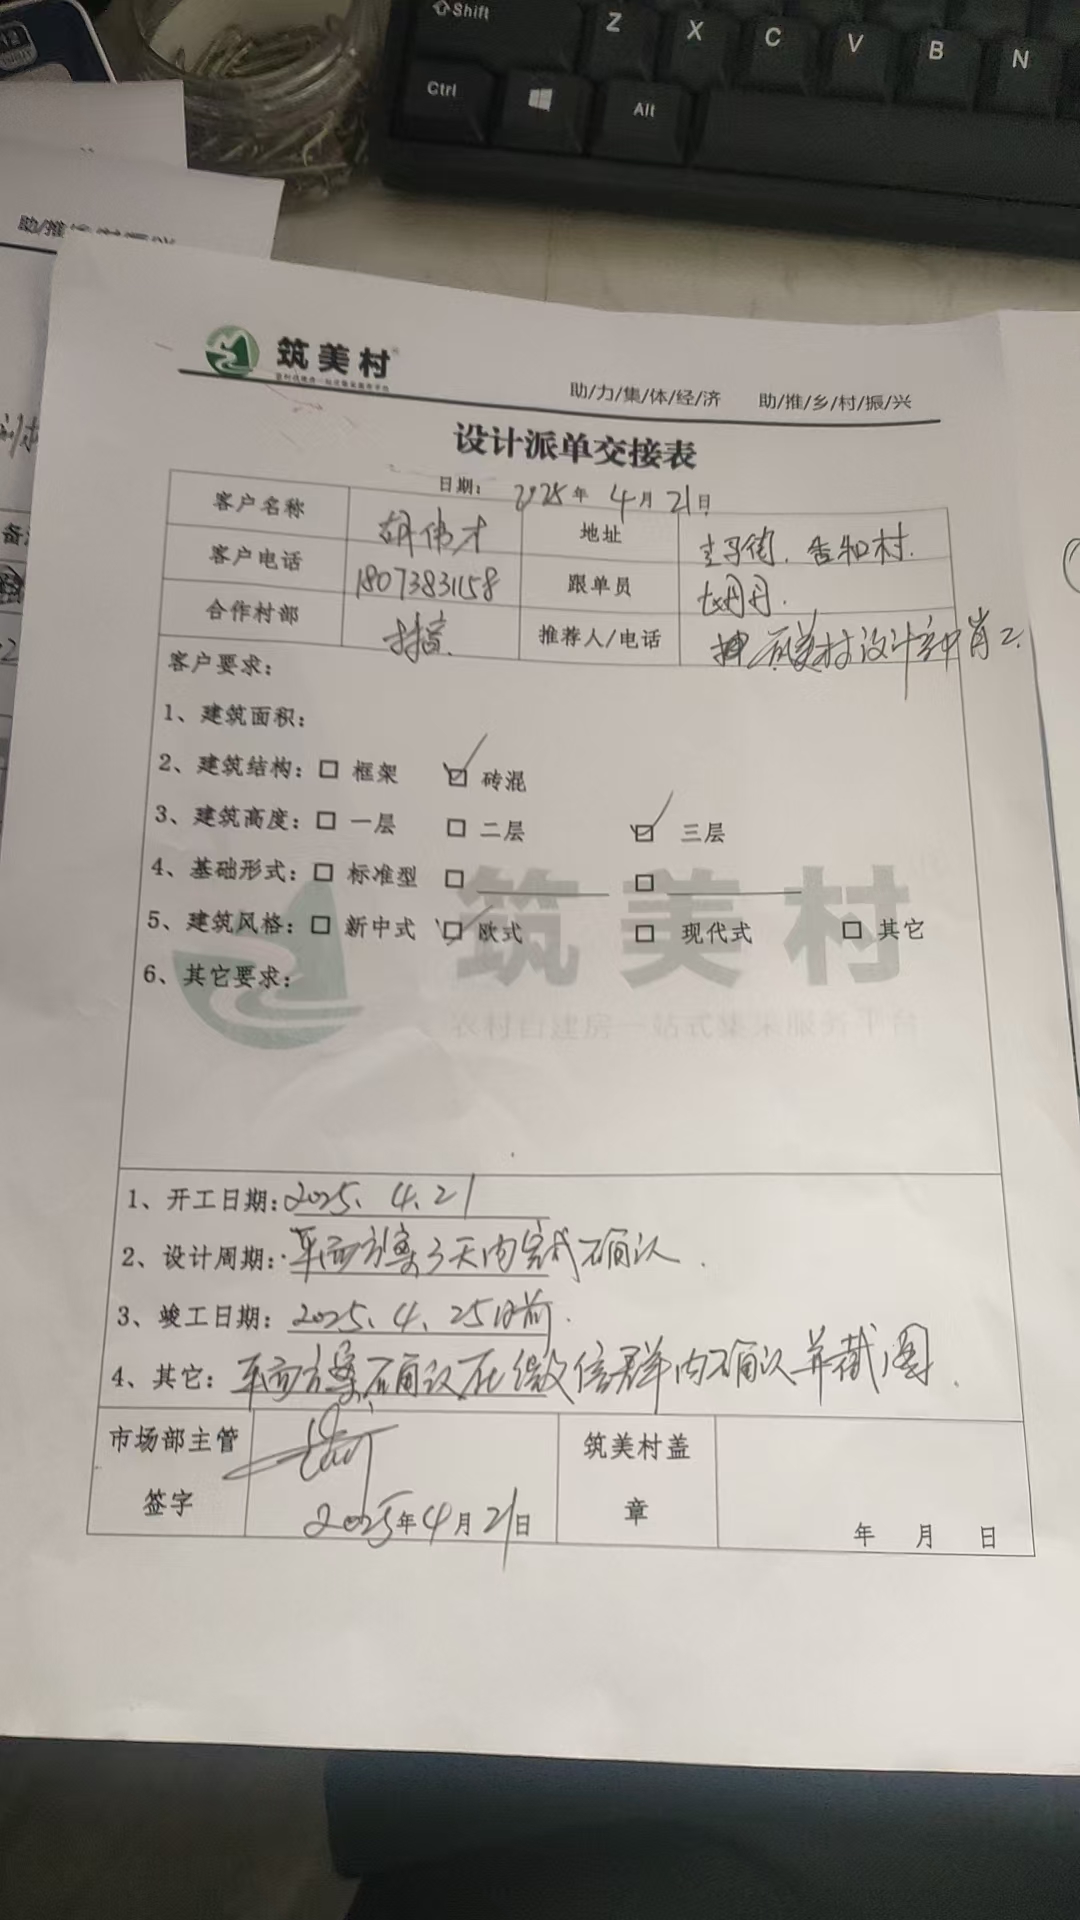 Shift
Z X C V B N
Ctrl
Alt
助/推
筑美村
助/力/集/体/经/济 助/推/乡/村/振/兴
设计派单交接表
日期: 2025年 4月 21日
客户名称 胡伟才 地址 告和村.
客户电话 18073831158 跟单员 丹丹.
合作村部 推荐人/电话 筑美村设计部肖工.
客户要求:
1、建筑面积:
2、建筑结构: □ 框架 ☑ 砖混
3、建筑高度: □ 一层 □ 二层 ☑ 三层
4、基础形式: □ 标准型 □ ________ □ ________
5、建筑风格: □ 新中式 ☑ 欧式 □ 现代式 □ 其它
6、其它要求:
筑美村
农村自建房一站式集采服务平台
1、开工日期: 2025、4、21
2、设计周期: 平面方案3天内完成确认.
3、竣工日期: 2025、4、25日前.
4、其它: 平面方案确认在微信群内确认并截图.
市场部主管 筑美村盖
签字 章
2025年4月21日 年 月 日